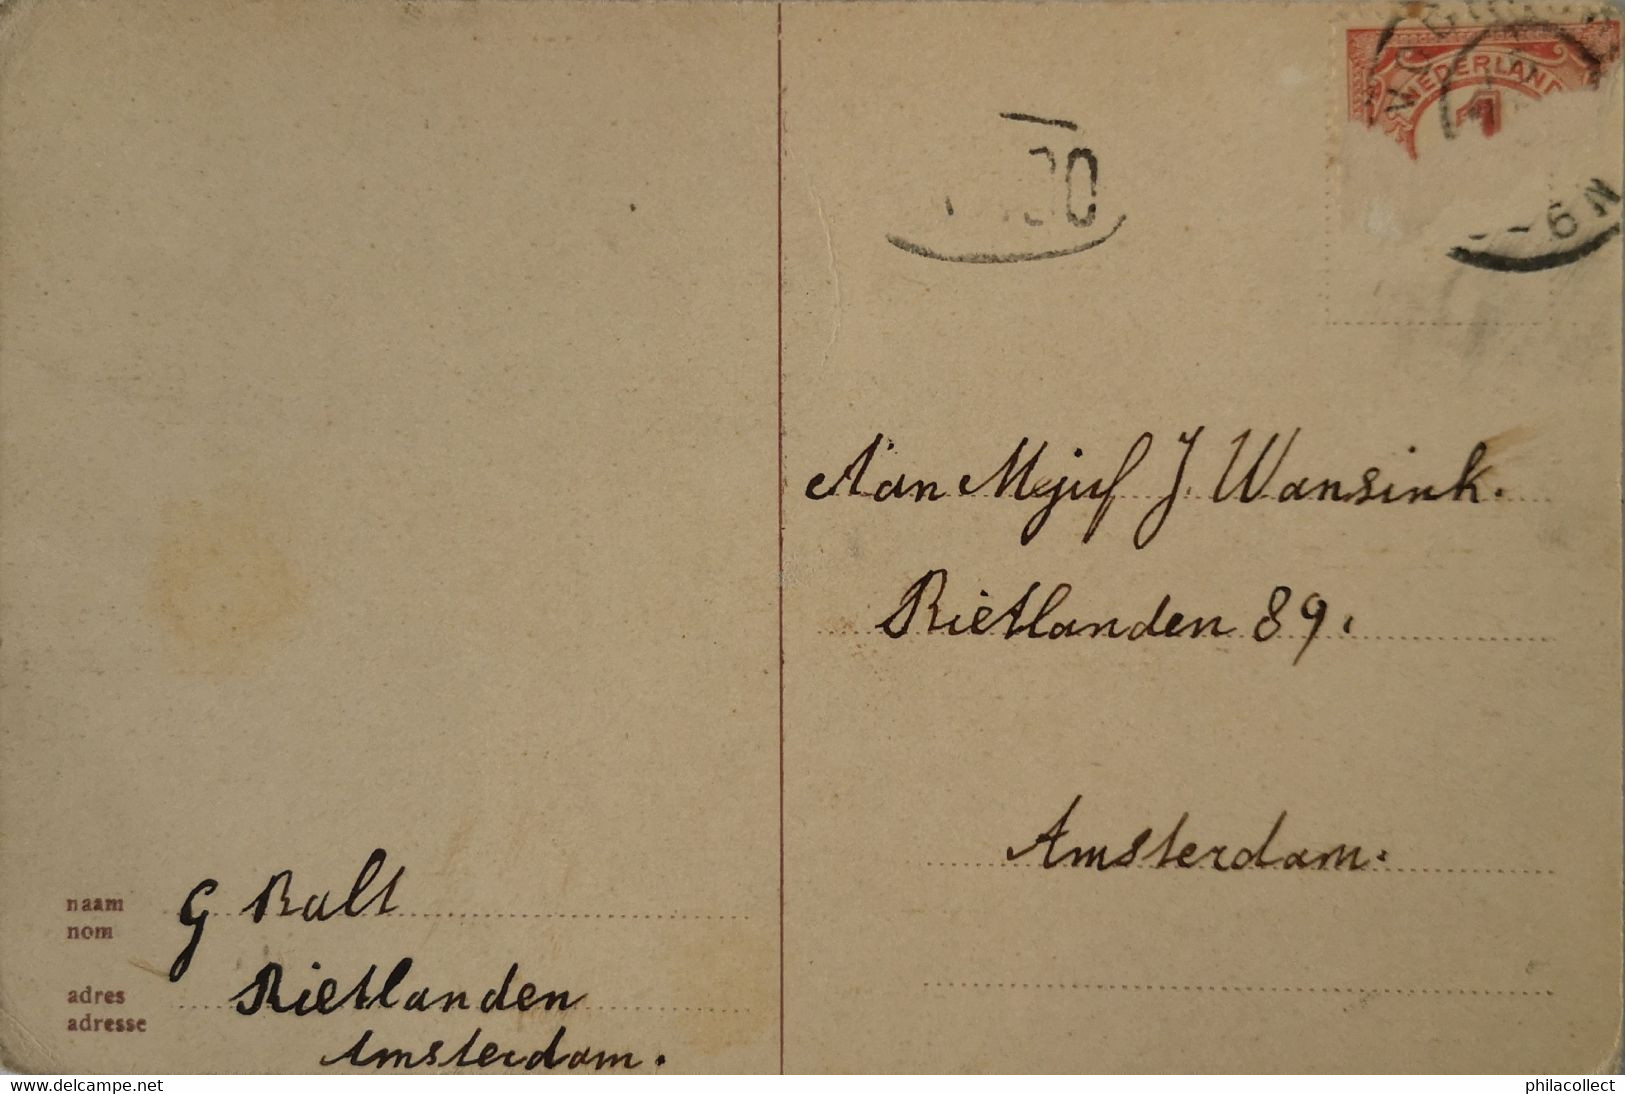 NEDERLAND
1
6 N
30
Aan Mejuf J. Wansink.
Rietlanden 89.
Amsterdam.
naam
nom
G Balt
adres
adresse
Rietlanden
Amsterdam.
delcampe.net
philacollect